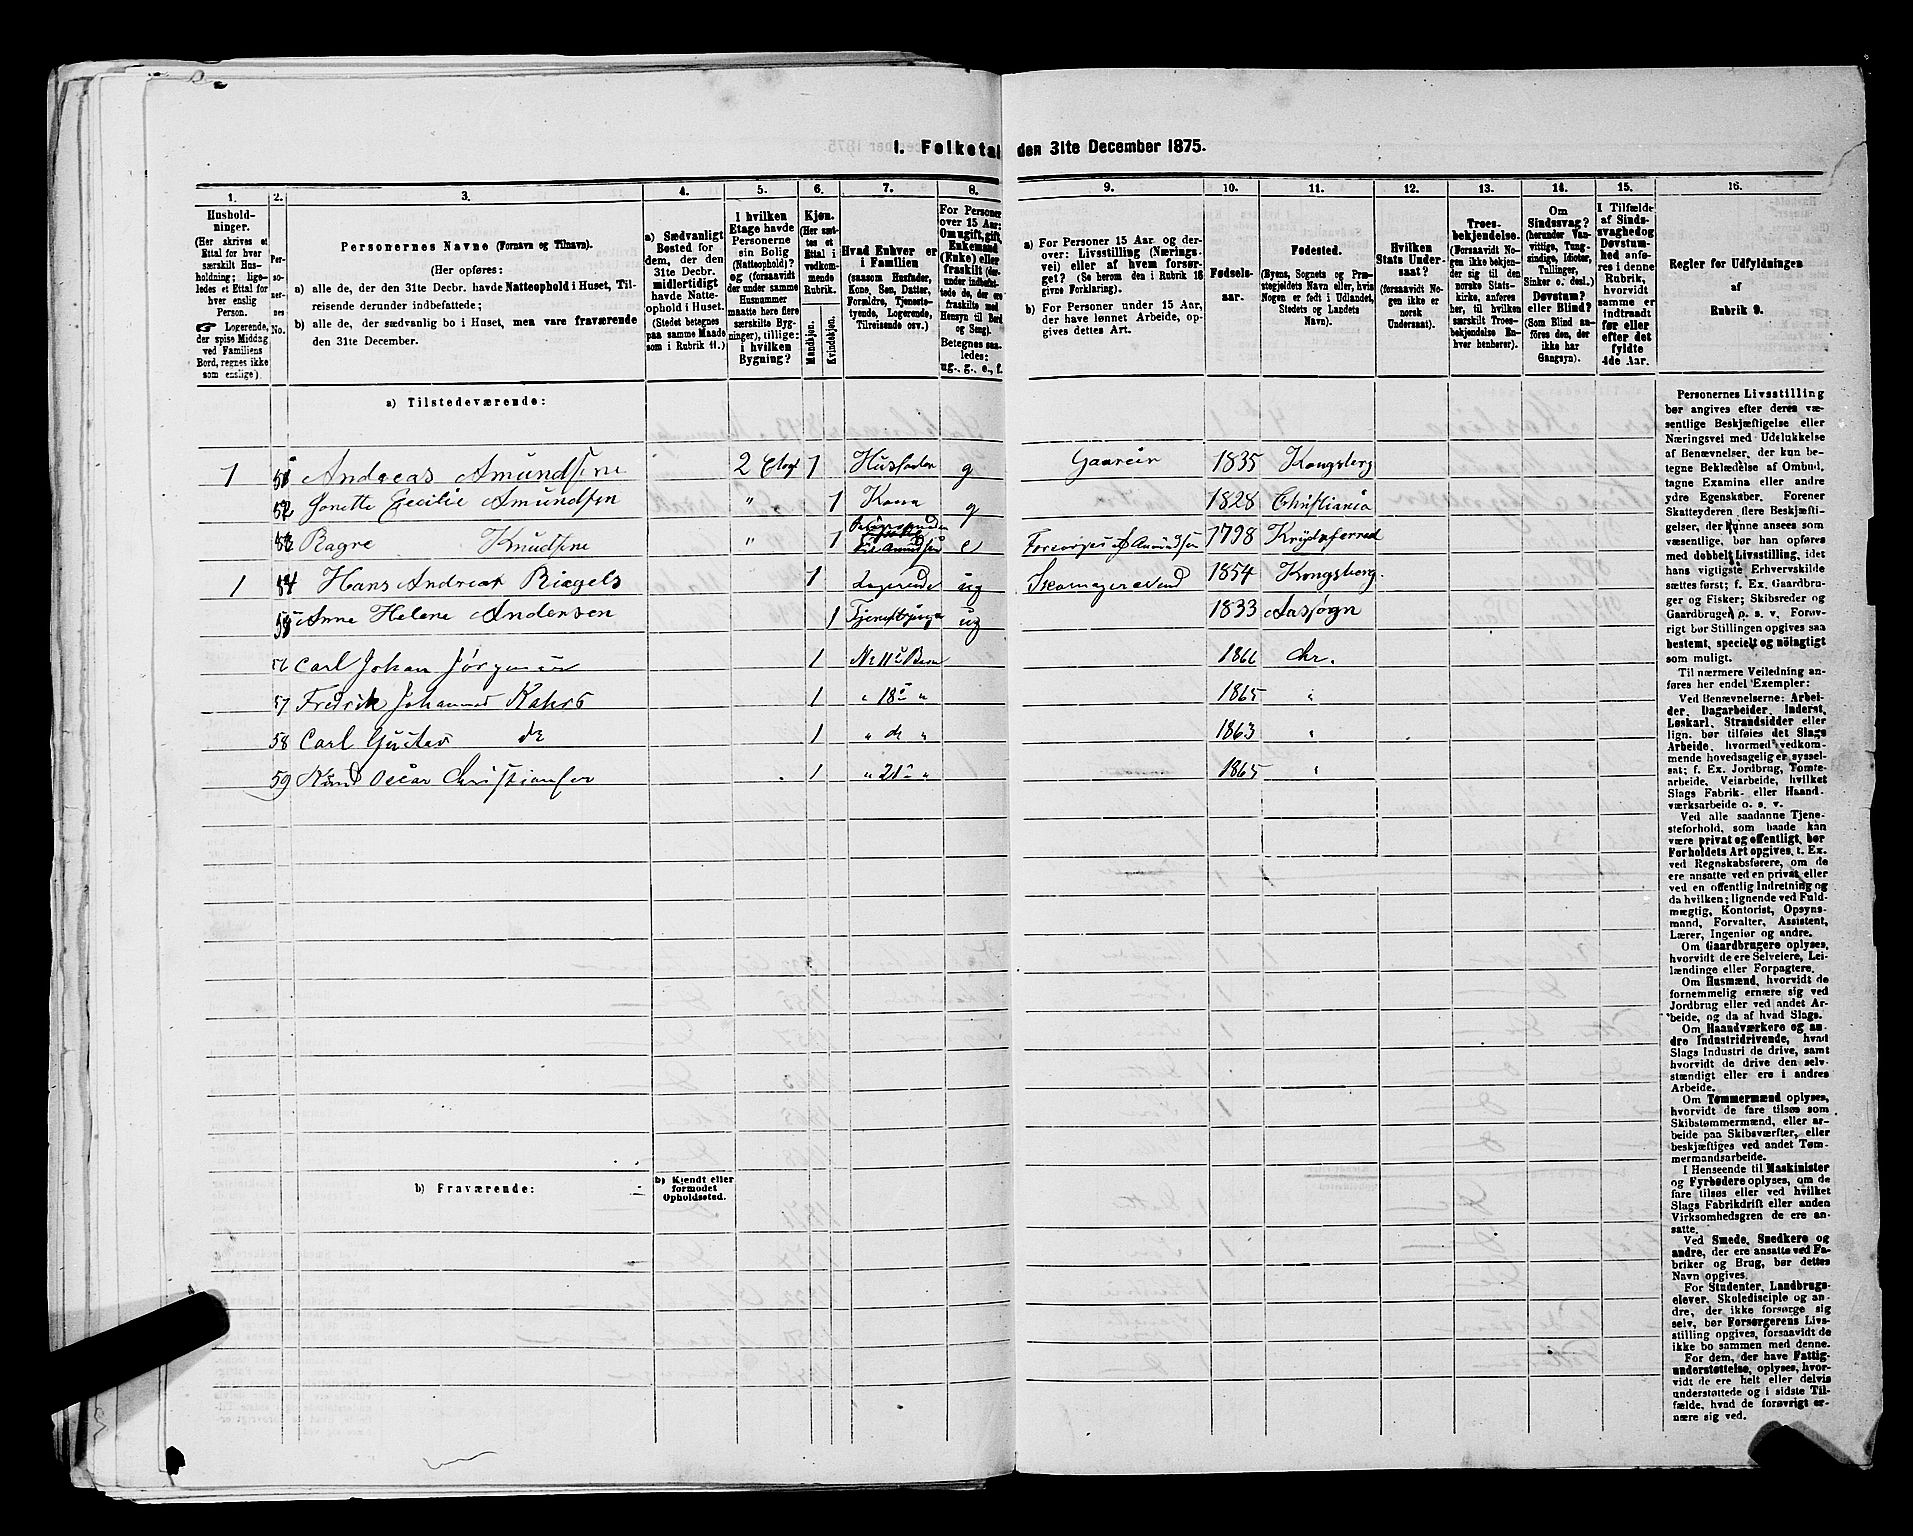 I. Folketal den 31te December 1875.
1. 2. 3. 4. 5. 6. 7. 8. 9. 10. 11. 12. 13. 14. 15. 16.
Hushold-
ninger.
(Her skrives et
Ettal for hver
særskilt Hus-
holdning; lige-
ledes et Ettal for
hver enslig
Person.
☞ Logerende,
der spise Middag
ved Familiens
Bord, regnes ikke
som enslige).
Per-
so-
ner-
nes
No.
Personernes Navne (Fornavn og Tilnavn).
(Her opføres:
a) alle de, der den 31te Decbr. havde Natteophold i Huset, Til-
reisende derunder indbefattede;
b) alle de, der sædvanlig bo i Huset, men vare fraværende
den 31te December.
a) Sædvanligt
Bosted for
dem, der den
31te Decbr.
midlertidigt
havde Natte-
ophold i Huset.
(Stedet betegnes
paa samme Maade
som i Rubrik 11.)
I hvilken
Etage havde
Personerne
sin Bolig
(Natteophold)?
og (forsaavidt
der under samme
Husnummer
maatte høre flere
særskilte Byg-
ninger), tillige:
i hvilken
Bygning?
Kjøn.
(Her sæt-
tes et
Ettal i
vedkom-
mende
Rubrik.
Mandkjøn.
Kvindekjøn.
Hvad Enhver er
i Familien
(saasom Husfader,
Kone, Søn, Datter,
Forældre, Tjeneste-
tyende, Logerende,
Tilreisende osv.)
For Personer
over 15 Aar:
Om ugift, gift,
Enkemand
(Enke) eller
fraskilt (der-
under indbefat-
tede de, der ere
fraskilte med
Hensyn til Bord
og Seng).
Betegnes saa-
ledes:
ug., g., e., f.
a) For Personer 15 Aar og der-
over: Livsstilling (Nærings-
vei) eller af hvem forsør-
get? (Se herom den i Rubrik 16
givne Forklaring).
b) For Personer under 15 Aar,
der have lønnet Arbeide, op-
gives dettes Art.
Fødsels-
aar.
Fødested.
(Byens, Sognets og Præ-
stegjeldets Navn eller, hvis
Nogen er født i Udlandet,
Stedets og Landets
Navn).
Hvilken
Stats Under-
saat?
(forsaavidt No-
gen ikke er
norsk
Undersaat).
Troes-
bekjendelse.
(Forsaavidt No-
gen ikke bekjen-
der sig til den
norske Stats-
kirke, anføres
her, til hvilken
særskilt Troes-
bekjendelse En-
hver henhører).
Om
Sindssvag?
(herunder Van-
vittige, Tung-
sindige, Idioter,
Tullinger,
Sinker o. desl.)
Døvstum?
eller Blind?
(Som Blind an-
føres den, der
ikke har
Gangsyn).
I Tilfælde
af Sinds-
svaghed og
Døvstum-
hed anfø-
res i denne
Rubrik,
hvorvidt
samme er
indtraadt
før eller
efter det
fyldte
4de Aar.
Regler for Udfyldningen
af
Rubrik 9.
a) Tilstedeværende:
1 51 Andreas Amundsen 2 Etag 1 Husfader g Gaareier 1835 Kongsberg
52 Jonette Cecilie Amundsen " 1 Kone g 1828 Christiania
53 Ragne Knudsen " 1 til Amundsen e Forsørges af Amundsen 1798 Krydsherred
1 54 Hans Andreas Riegels 1 Logerende ug Skomagersvend 1854 Kongsberg.
55 Anne Helene Andersen 1 Tjenestepige ug 1833 Aasjorgn
56 Carl Johan Jørgensen 1 No 11's Barn 1866 Chr.
57 Fredrik Johannes Kahrs 1 " 18's " 1865 "
58 Carl Gustav do 1 " do " 1863 "
59 Knud Oscar Christiansen 1 " 21's " 1865 "
b) Fraværende:
b) Kjendt eller
formodet
Opholdssted.
Personernes Livsstilling
bør angives efter deres væ-
sentlige Beskjæftigelse eller
Næringsvei med Udelukkelse
af Benævnelser, der kun be-
tegne Beklædelse af Ombud,
tagne Examina eller andre
ydre Egenskaber. Forener
Skatteyderen flere Beskjæfti-
gelser, der kunne ansees som
væsentlige, bør han opføres
med dobbelt Livsstilling, idet
hans vigtigste Erhvervskilde
sættes først; f. Ex. Gaardbru-
ger og Fisker; Skibsreder og
Gaardbruger o. s. v. Forøv-
rigt bør Stillingen opgives saa
bestemt, specielt og nøiagtigt
som muligt.
Til nærmere Veiledning an-
føres her endel Exempler:
Ved Benævnelserne: Arbei-
der, Dagarbeider, Inderst,
Løskarl, Strandsidder eller
lign. bør tilføies det Slags
Arbeide, hvormed vedkom-
mende hovedsagelig er syssel-
sat; f. Ex. Jordbrug, Tomte-
arbeide, Veiarbeide, hvilket
Slags Fabrik- eller Haand-
værksarbeide o. s. v.
Ved alle saadanne Tjene-
steforhold, som baade kan
være privat og offentligt, bør
Forholdets Art opgives, t. Ex.
ved Regnskabsførere, om de
ere ansatte ved en privat eller
ved en offentlig Indretning og
da hvilken; lignende ved Fuld-
mægtig, Kontorist, Opsyns-
mand, Forvalter, Assistent,
Lærer, Ingeniør og andre.
Om Gaardbrugere oplyses,
hvorvidt de ere Selveiere, Lei-
lændinge eller Forpagtere.
Om Husmænd, hvorvidt de
fornemmelig ernære sig ved
Jordbrug eller ved andet Ar-
beide, og da af hvad Slags.
Om Haandværkere og an-
dre Industridrivende, hvad
Slags Industri de drive, samt
hvorvidt de drive den selv-
stændigt eller ere i andres
Arbeide.
Om Tømmermænd oplyses,
hvorvidt de fare tilsøs som
Skibstømmermænd, eller ar-
beide paa Skibsværfter, eller
beskjæftiges ved andet Tøm-
mermandsarbeide.
I Henseende til Maskinister
og Fyrbødere oplyses, om de
fare tilsøs eller ved hvilket
Slags Fabrikdrift eller anden
Virksomhedsgren de ere an-
satte.
Ved Smede, Snedkere og
andre, der ere ansatte ved Fa-
briker og Brug, bør dettes
Navn opgives.
For Studenter, Landbrugs-
elever, Skoledisciple og an-
dre, der ikke forsørge sig
selv, bør Forsørgerens Livs-
stilling opgives, forsaavidt de
ikke bo sammen med denne.
For dem, der have Fattig-
understøttelse, oplyses, hvor-
vidt de ere helt eller delvis
understøttede og i sidste Til-
fælde, hvad de forøvrigt er-
nære sig ved.